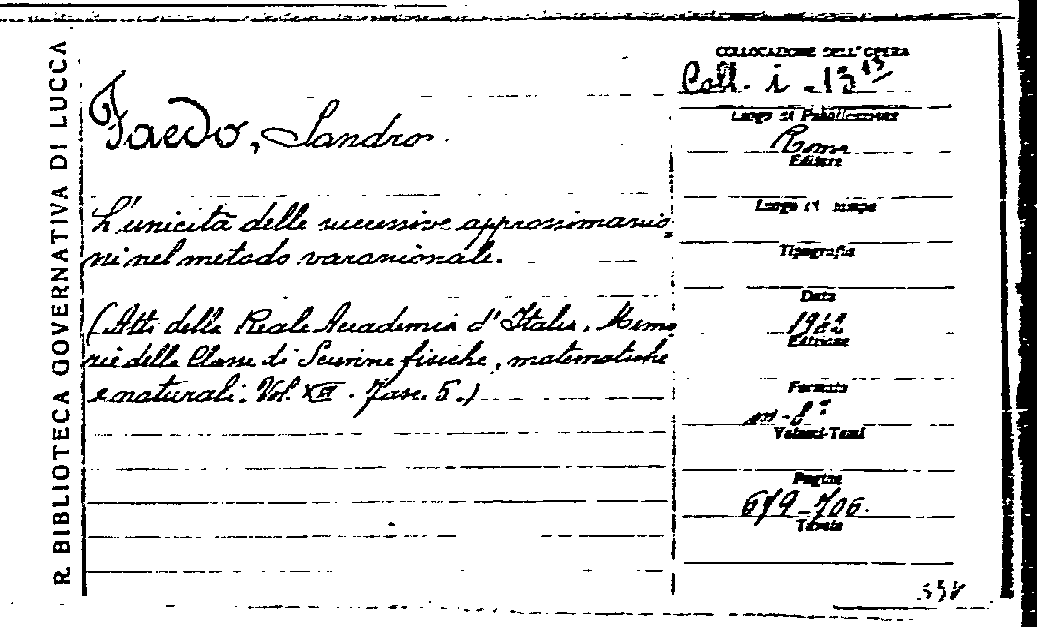 R. BIBLIOTECA GOVERNATIVA DI LUCCA
Faedo, Sandro.
L'unicità delle successive approssimazio
ni nel metodo variazionale.
(Atti della Reale Accademia d'Italia. Memo
rie della Classe di Scienze fisiche, matematiche
e naturali. Vol. XIII. Fasc. 5.)
COLLOCAZIONE DELL'OPERA
Coll. i - 13
Luogo di Pubblicazione
Roma
Editore
Luogo di stampa
Tipografia
Data
1942
Edizione
Formato
in-8°
Volumi-Tomi
Pagine
679-706.
Tavole